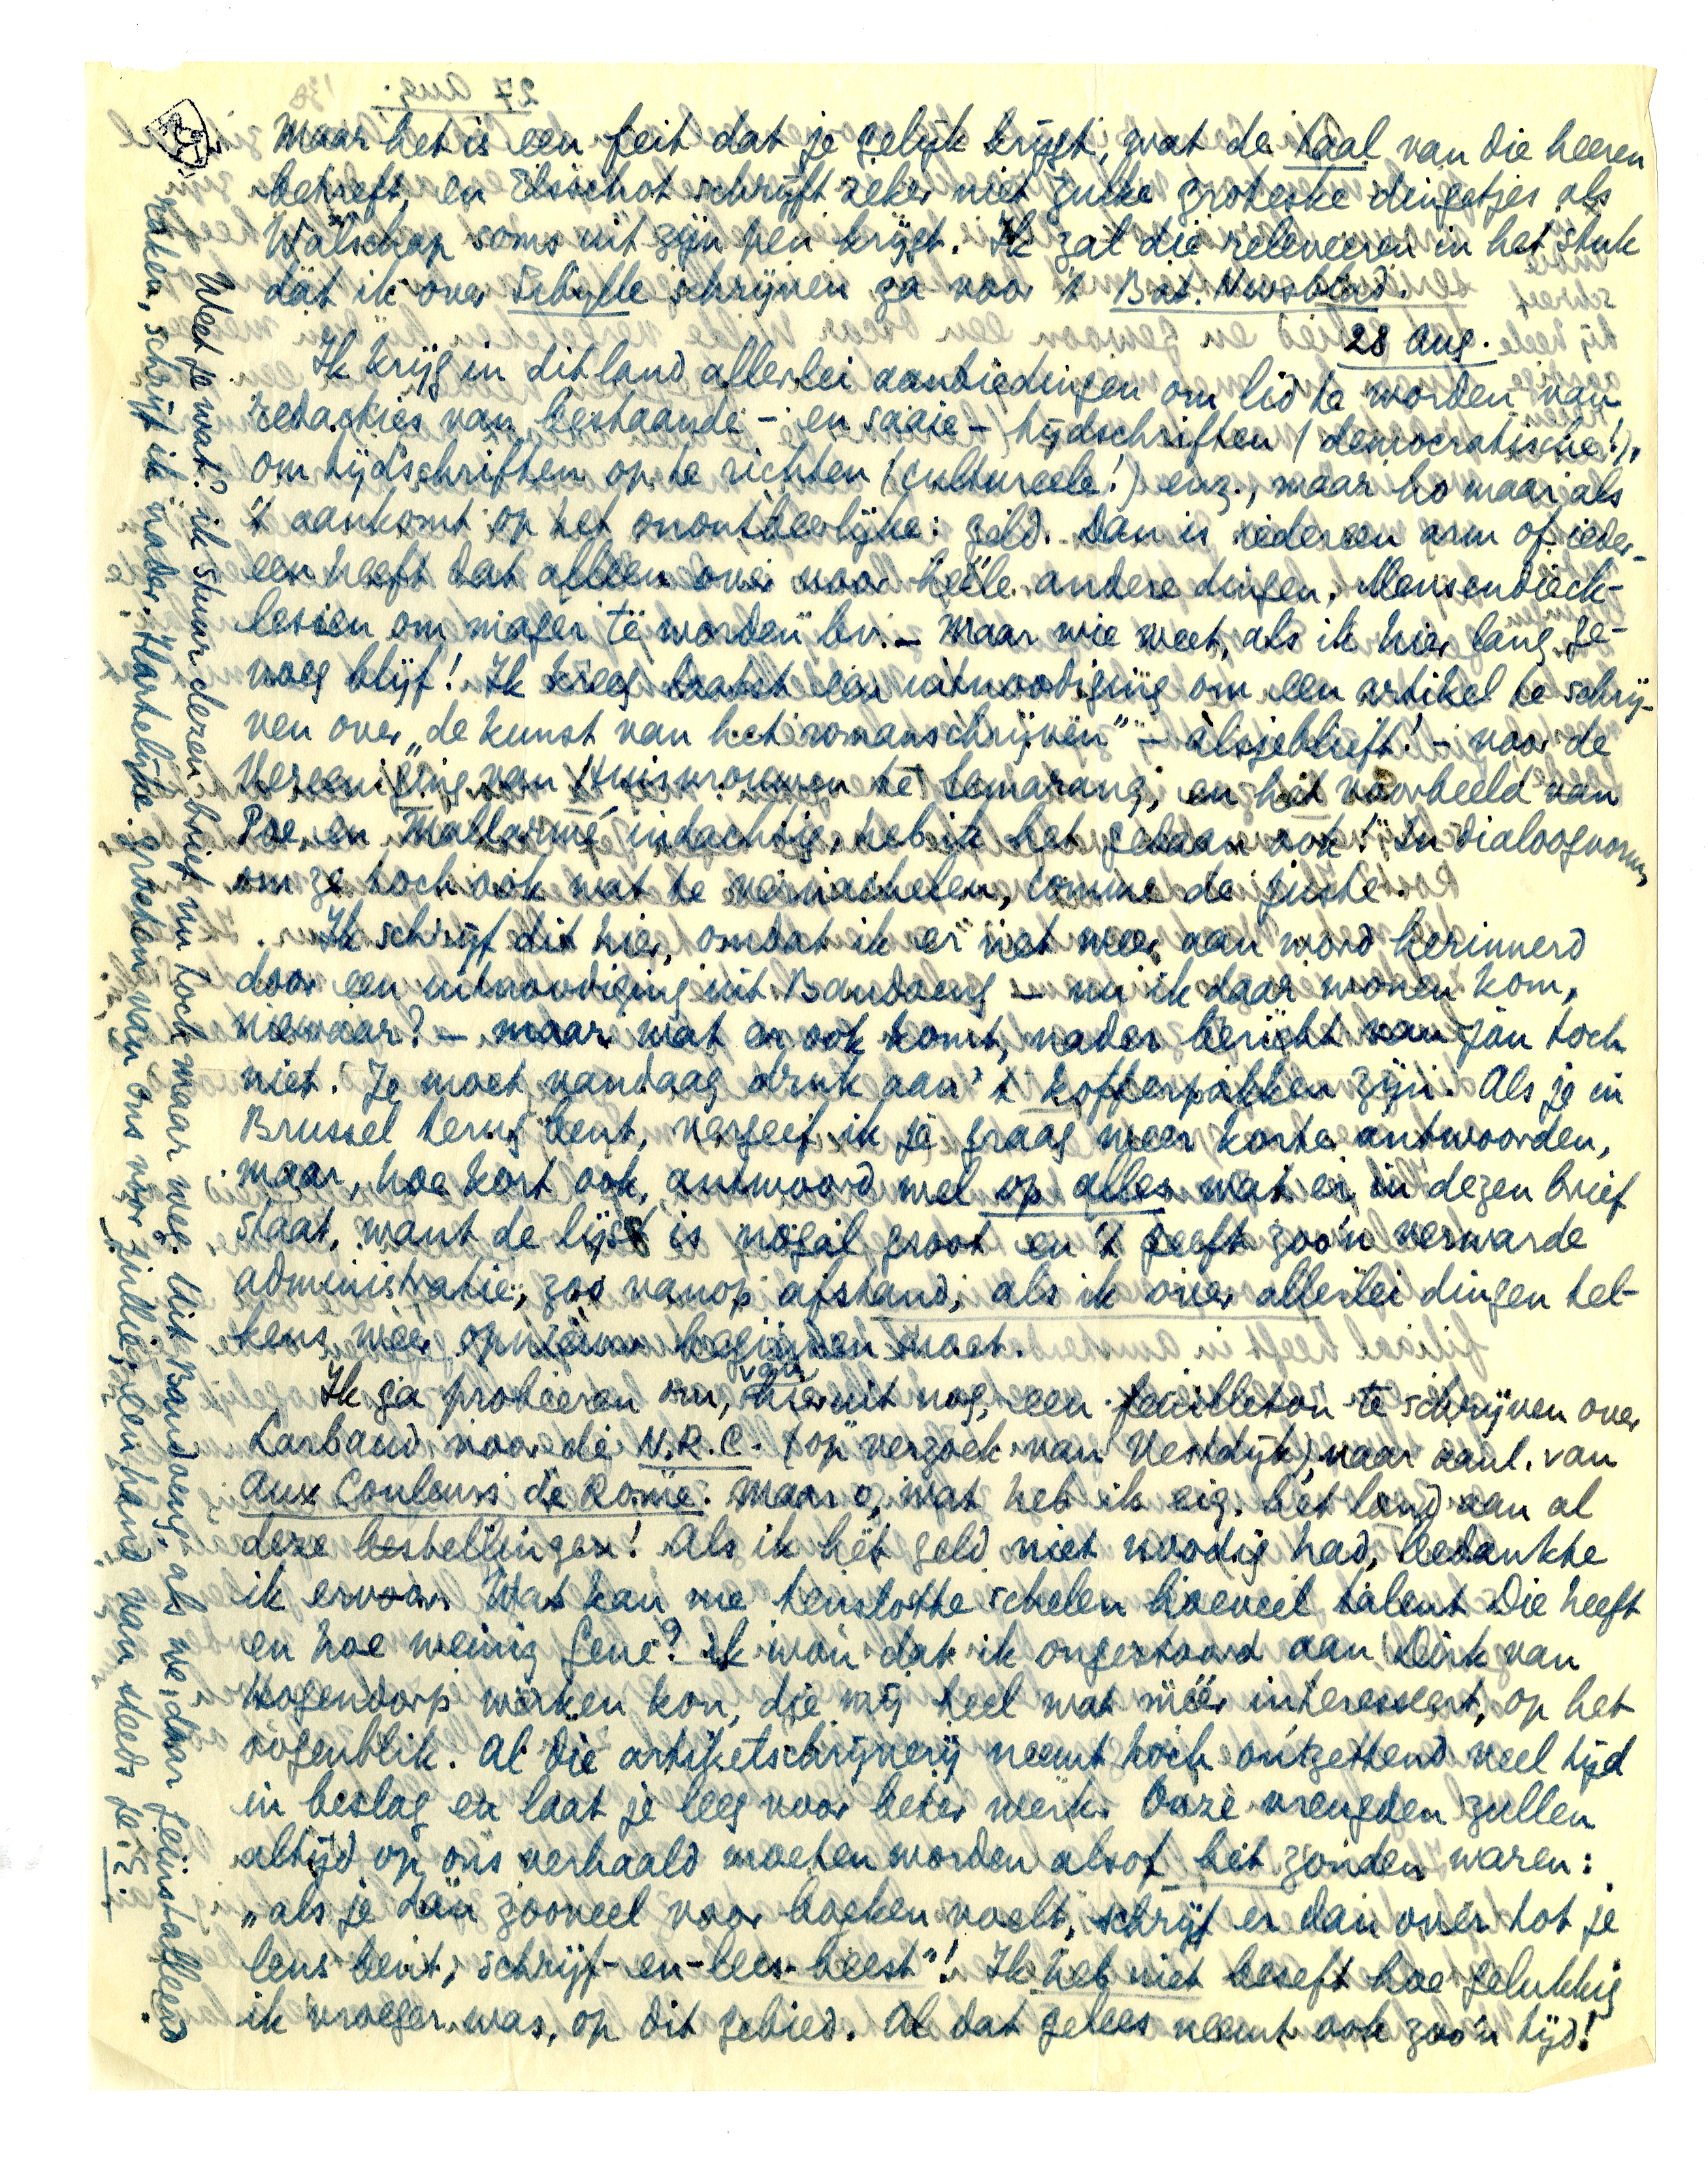 Maar het is een feit dat je gelijk krijgt, wat de taal van die heeren
betreft, en Elsschot schrijft zeker niet zulke groteske dingetjes als
Walschap soms uit zijn pen krijgt. Ik zal die releveeren in het stuk
dat ik over Sibylle schrijven ga voor 't Bat. Nwsblad.
28 Aug.
Ik krijg in dit land allerlei aanbiedingen om lid te worden van
redakties van bestaande – en saaie – tijdschriften (democratische!),
om tijdschriften op te richten (cultureele!) enz., maar ho maar als
't aankomt op het onontbeerlijke: geld. Dan is iedereen arm of ieder-
een heeft dat alleen over voor heele andere dingen, Mensendieck-
lessen om mager te worden bv. – Maar wie weet, als ik hier lang ge-
noeg blijf! Ik kreeg laatst een uitnoodiging om een artikel te schrij-
ven over „de kunst van het romanschrijven” – alsjeblieft! – voor de
Vereeniging van Huisvrouwen te Semarang, en het voorbeeld van
Poe en Mallarmé indachtig, heb ik het gedaan ook! In dialoogvorm,
om ze toch ook wat te vernachelen, comme de juste.
Ik schrijf dit hier, omdat ik er net weer aan word herinnerd
door een uitnoodiging uit Bandoeng – nu ik daar wonen kom,
niewaar? – maar wat er ook komt, nader bericht van Jan toch
niet. Je moet vandaag druk aan 't kofferpakken zijn. Als je in
Brussel terug bent, vergeef ik je graag weer korte antwoorden,
maar, hoe kort ook, antwoord wel op alles wat er in dezen brief
staat, want de lijst is nogal groot en 't geeft zoo'n verwarde
administratie, zoo vanop afstand, als ik over allerlei dingen tel-
kens weer opnieuw beginnen moet.
Ik ga probeeren om, van hieruit nog, een feuilleton te schrijven over
Larbaud voor de N.R.C. (op verzoek van Vestdijk), naar aanl. van
Aux Couleurs de Rome. Maar o, wat heb ik eig. het land aan al
deze bestellingen! Als ik het geld niet noodig had, bedankte
ik ervoor. Wat kan me tenslotte schelen hoeveel talent Die heeft
en hoe weinig Gene? Ik wou dat ik ongestoord aan Dirk van
Hogendorp werken kon, die mij heel wat méér interesseert, op het
oogenblik. Al die artikelschrijverij neemt toch ontzettend veel tijd
in beslag en laat je leeg voor beter werk. Onze vreugden zullen
altijd op ons verhaald moeten worden alsof het zonden waren:
„als je dan zooveel voor boeken voelt, schrijf er dan over tot je
lens bent, schrijf-en-lees-beest”! Ik heb niet beseft hoe gelukkig
ik vroeger was, op dit gebied. Al dat gelees neemt ook zoo'n tijd!
Weet je wat? ik stuur dezen brief nu toch maar weg. Uit Bandoeng, als we daar geïnstalleerd
raken, schrijf ik nader. Hartelijke groeten van ons voor jullie, een hand van steeds je E.
27 Aug. '38